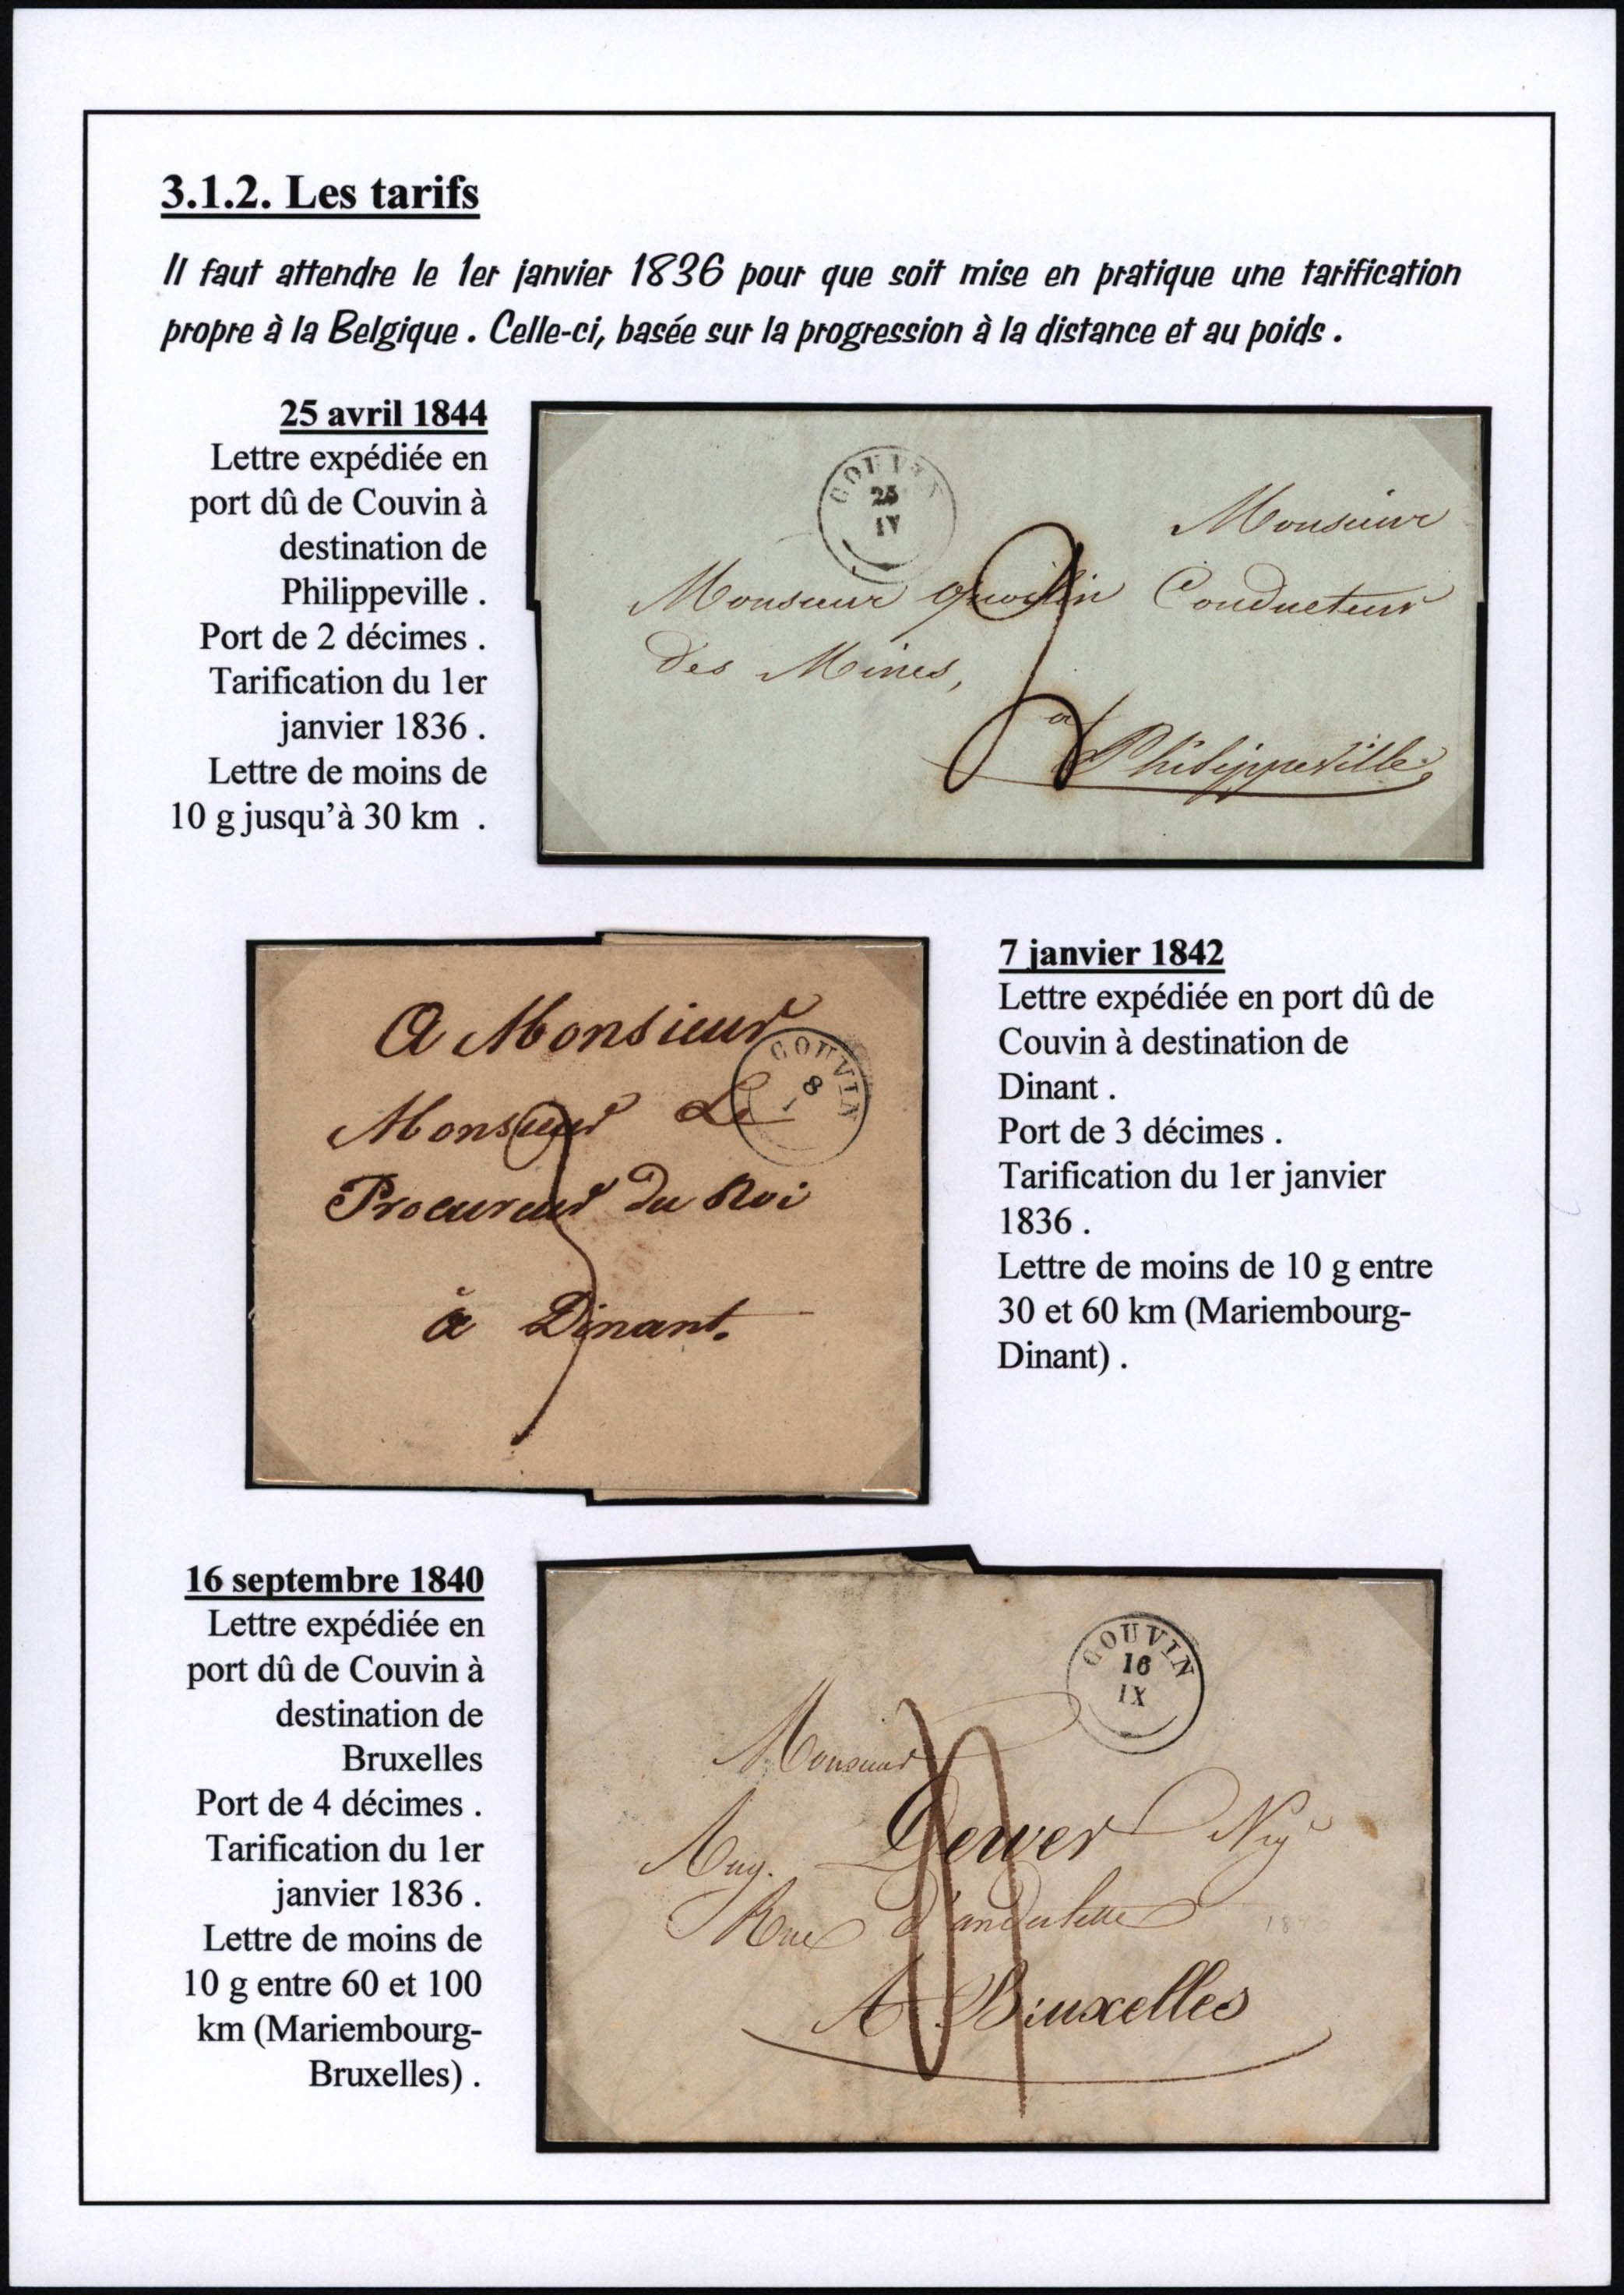 3.1.2. Les tarifs
Il faut attendre le 1er janvier 1836 pour que soit mise en pratique une tarification
propre à la Belgique . Celle-ci, basée sur la progression à la distance et au poids .
25 avril 1844
Lettre expédiée en
port dû de Couvin à
destination de
Philippeville .
Port de 2 décimes .
Tarification du 1er
janvier 1836 .
Lettre de moins de
10 g jusqu'à 30 km .
COUVIN
25
IV
Monsieur
Monsieur Conducteur
des Mines,
a
Philippeville
A Monsieur
Monsieur Le
Procureur du Roi
à Dinant.
COUVIN
8
7 janvier 1842
Lettre expédiée en port dû de
Couvin à destination de
Dinant .
Port de 3 décimes .
Tarification du 1er janvier
1836 .
Lettre de moins de 10 g entre
30 et 60 km (Mariembourg-
Dinant) .
16 septembre 1840
Lettre expédiée en
port dû de Couvin à
destination de
Bruxelles
Port de 4 décimes .
Tarification du 1er
janvier 1836 .
Lettre de moins de
10 g entre 60 et 100
km (Mariembourg-
Bruxelles) .
COUVIN
16
IX
Monsieur
Aug. Dewer Negt
Rue d'anderlette
A Bruxelles